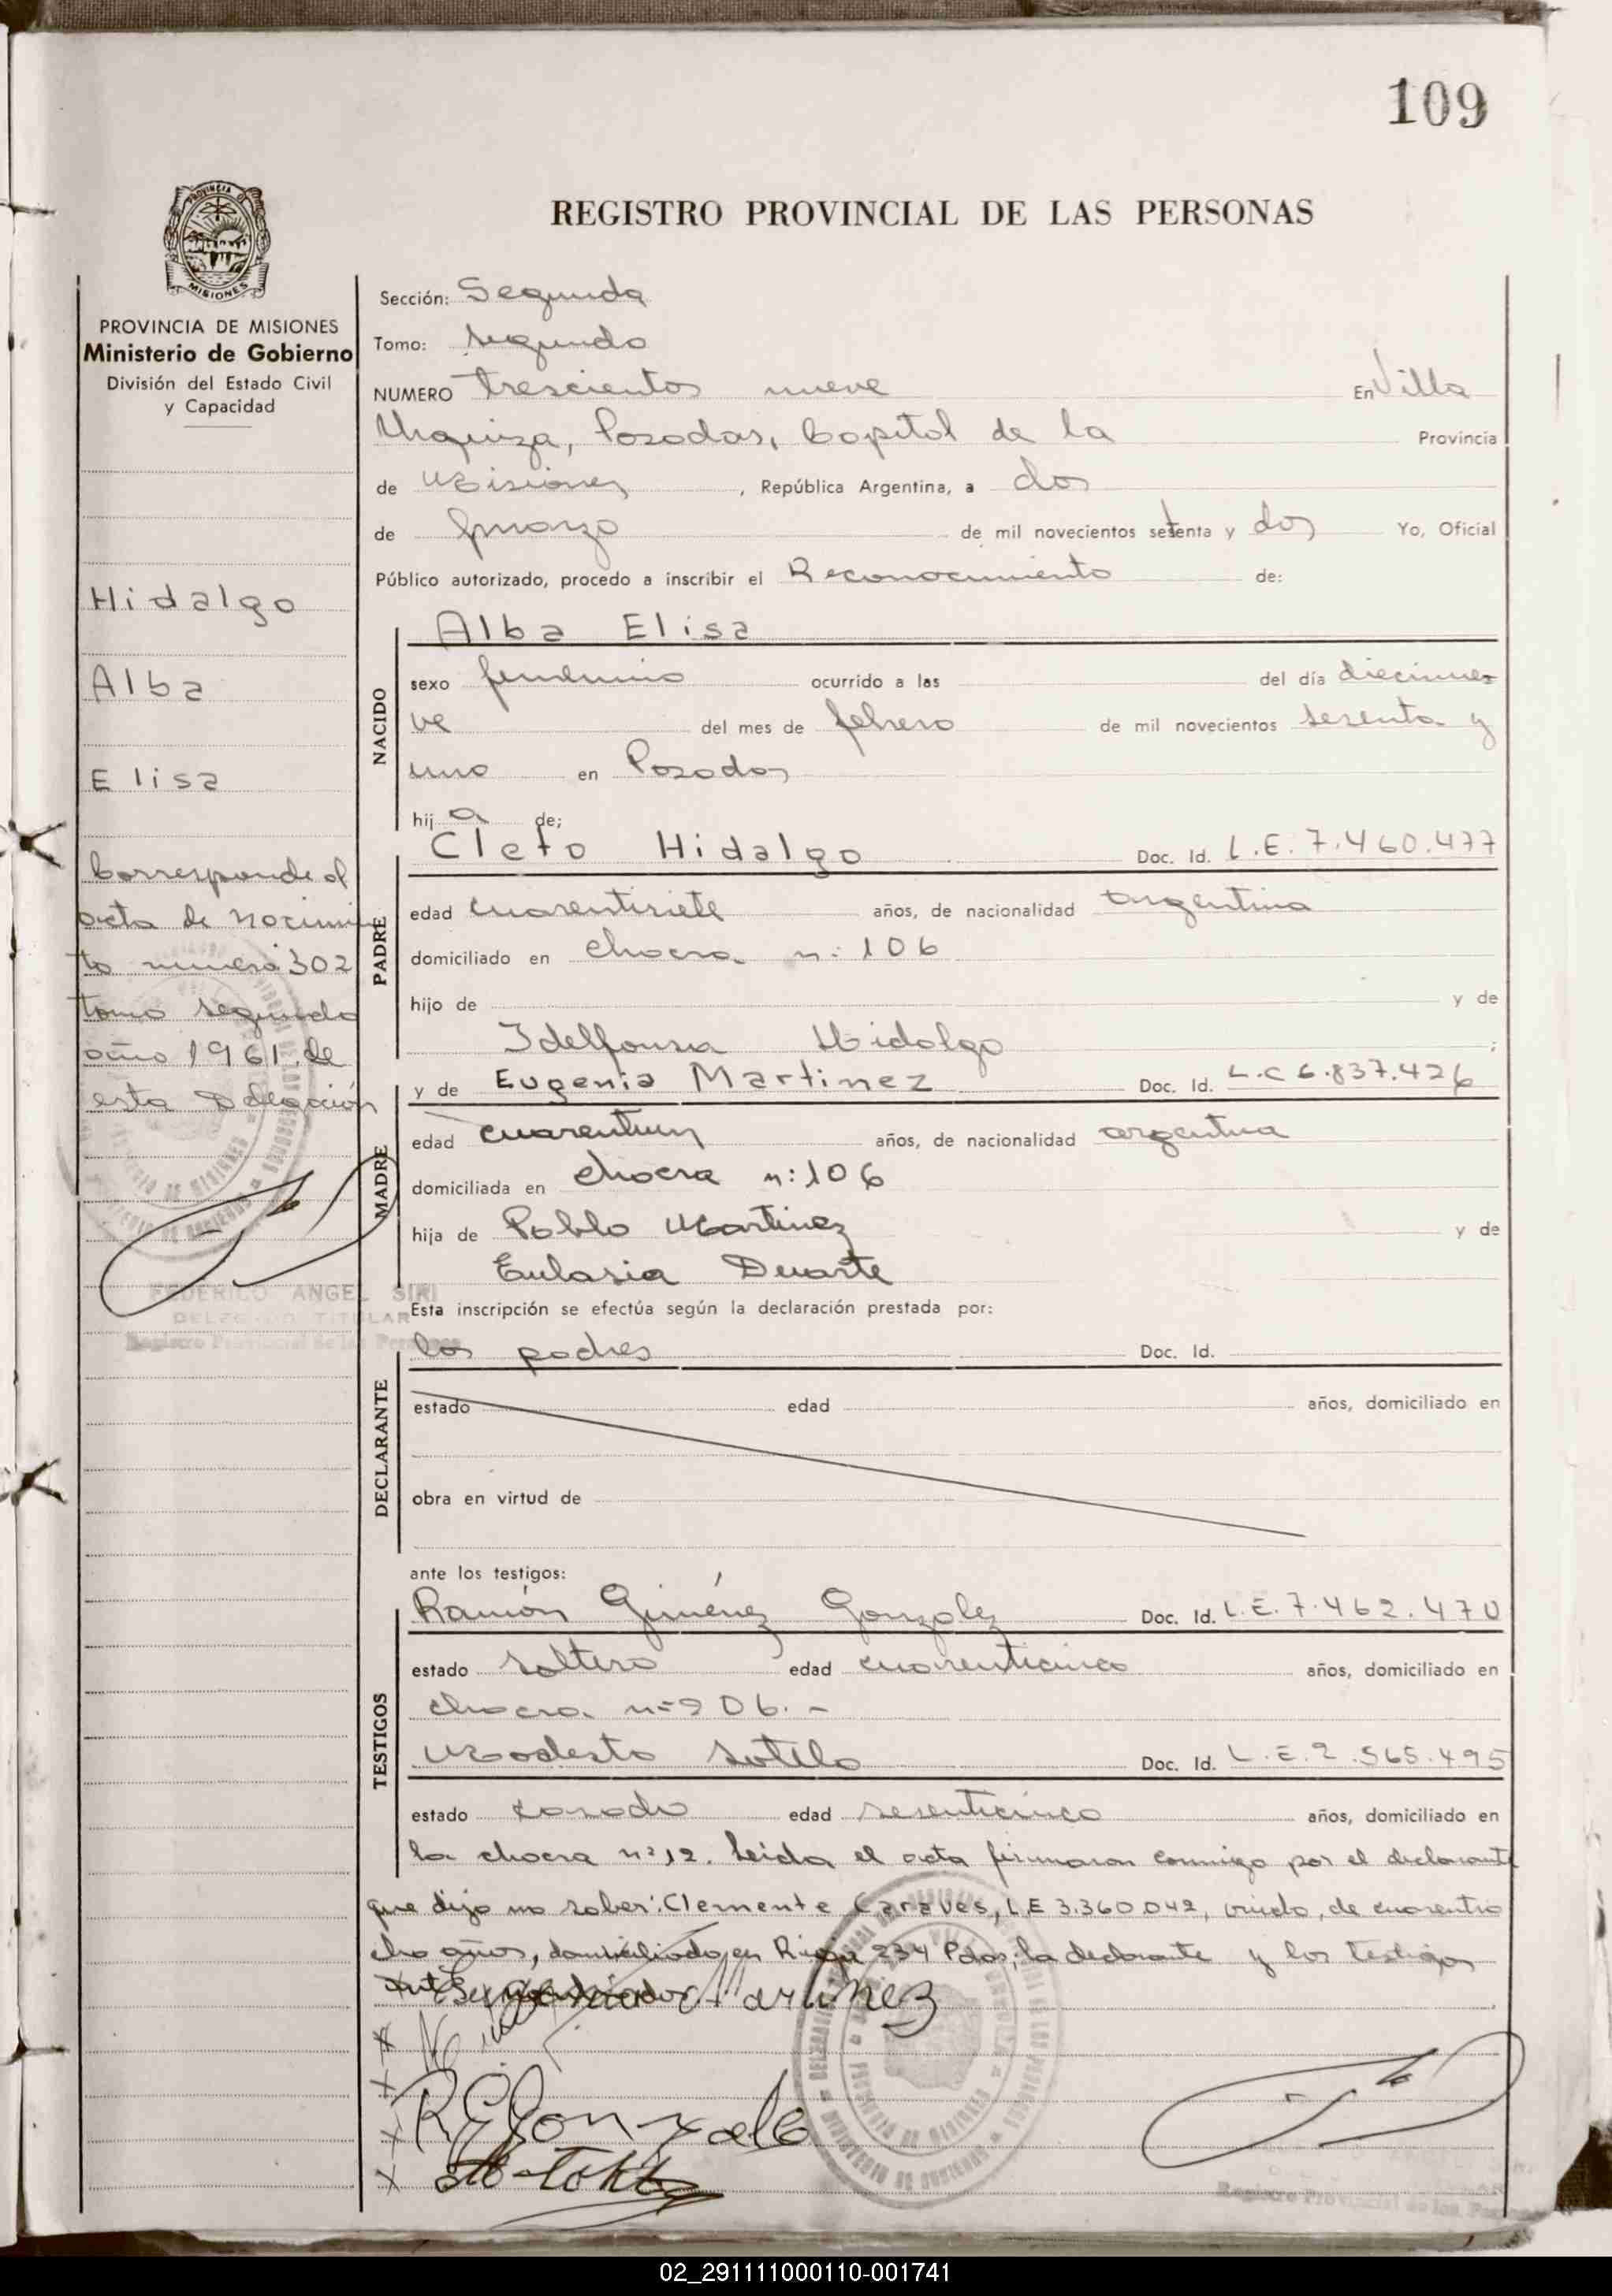 109
REGISTRO PROVINCIAL DE LAS PERSONAS
PROVINCIA DE MISIONES
PROVINCIA DE MISIONES
Ministerio de Gobierno
División del Estado Civil
y Capacidad
Hidalgo
Alba
Elisa
Corresponde al
acta de nacimien
to numero 302
tomo segundo
año 1961 de
esta Delegación
FEDERICO ANGEL SIRI
DELEGADO TITULAR
Registro Provincial de las Personas
Sección: Segunda
Tomo: segundo
NUMERO trescientos nueve En Villa
Urquiza, Posadas, Capital de la Provincia
de Misiones, República Argentina, a dos
de marzo de mil novecientos setenta y dos Yo, Oficial
Público autorizado, procedo a inscribir el Reconocimiento de:
NACIDO
Alba Elisa
sexo femenino ocurrido a las del día diecinue
ve del mes de febrero de mil novecientos sesenta y
uno en Posadas
hij a de;
PADRE
Cleto Hidalgo Doc. Id. L.E. 7.460.477
edad cuarentisiete años, de nacionalidad argentina
domiciliado en chacra n: 106
hijo de y de
Idelfonsa Hidalgo ;
MADRE
y de Eugenia Martinez Doc. Id. L.C 6.837.426
edad cuarentiun años, de nacionalidad argentina
domiciliada en chacra n: 106
hija de Pablo Martinez y de
Eulasia Duarte
Esta inscripción se efectúa según la declaración prestada por:
DECLARANTE
los padres Doc. Id.
estado edad años, domiciliado en
obra en virtud de
ante los testigos:
TESTIGOS
Ramón Giménez Gonzalez Doc. Id. L.E. 7.462.470
estado soltero edad cuarenticinco años, domiciliado en
chacra n= 206. -
Modesto Sotelo Doc. Id. L.E. 2.565.495
estado casado edad sesenticinco años, domiciliado en
la chacra nº 12. Leida el acta firmaron conmigo por el declarante
que dijo no saber: Clemente Caraves, L.E 3.360.042, viudo, de cuarentio
cho años, domiciliado en Rioja 234 Pdas; la declarante y los testigos
Eugenia Martinez
R G Gonzale
Registro Provincial de las Personas
02_291111000110-001741